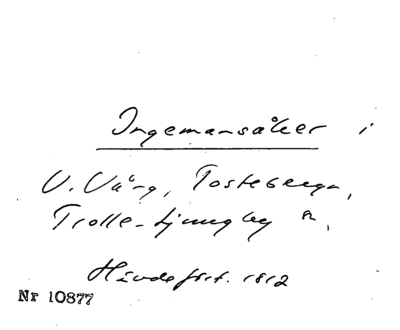 Ingemansåker i
V. Vång, Tosteberga,
Trolle-Ljungby sn.
Hävdefört. 1812
Nr 10877